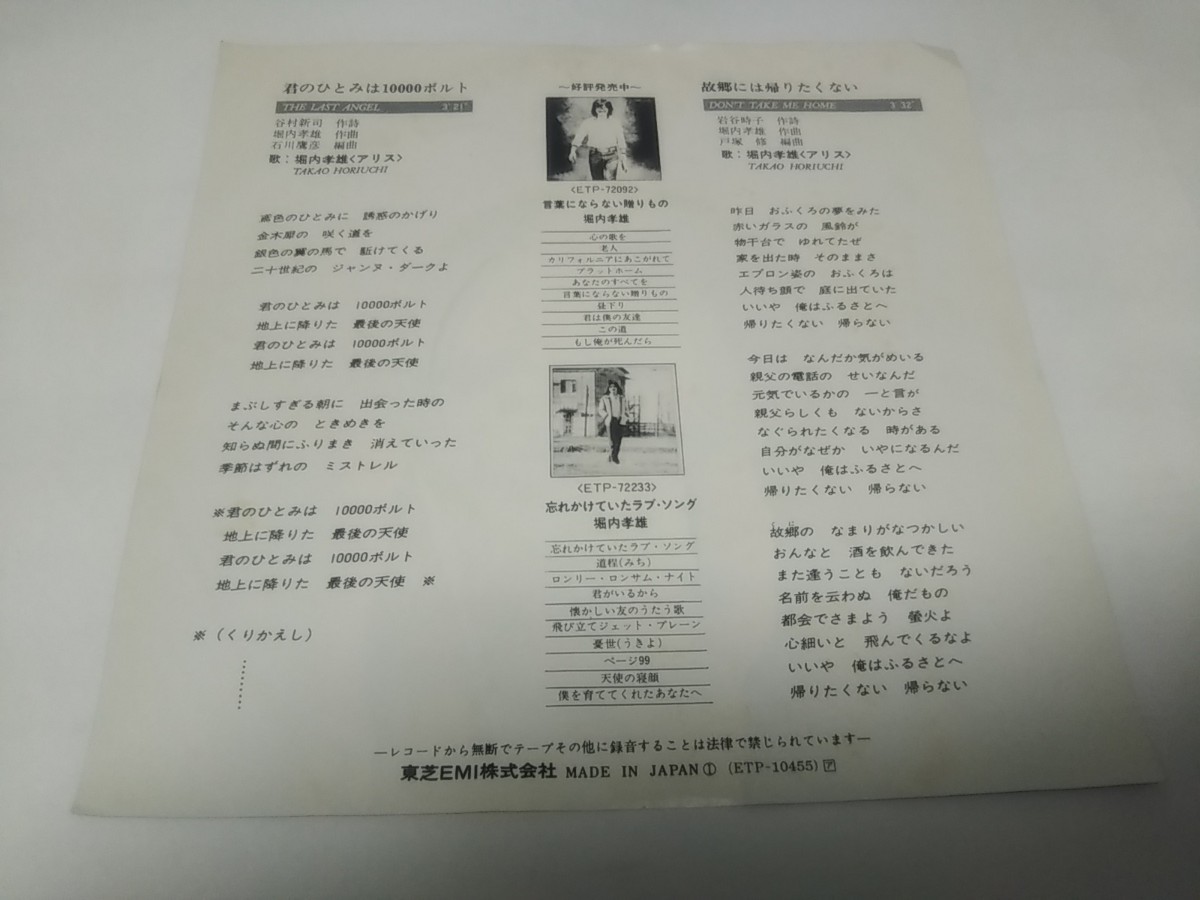 君のひとみは10000ボルト
THE LAST ANGEL 3'21"
谷村新司 作詩
堀内孝雄 作曲
石川鷹彦 編曲
歌：堀内孝雄<アリス>
TAKAO HORIUCHI
鳶色のひとみに 誘惑のかげり
金木犀の 咲く道を
銀色の翼の馬で 駈けてくる
二十世紀の ジャンヌ・ダークよ
君のひとみは 10000ボルト
地上に降りた 最後の天使
君のひとみは 10000ボルト
地上に降りた 最後の天使
まぶしすぎる朝に 出会った時の
そんな心の ときめきを
知らぬ間にふりまき 消えていった
季節はずれの ミストレル
※君のひとみは 10000ボルト
地上に降りた 最後の天使
君のひとみは 10000ボルト
地上に降りた 最後の天使 ※
※（くりかえし）
〜好評発売中〜
<ETP-72092>
言葉にならない贈りもの
堀内孝雄
心の歌を
老人
カリフォルニアにあこがれて
プラットホーム
あなたのすべてを
言葉にならない贈りもの
昼下り
君は僕の友達
この道
もし俺が死んだら
<ETP-72233>
忘れかけていたラブ・ソング
堀内孝雄
忘れかけていたラブ・ソング
道程(みち)
ロンリー・ロンサム・ナイト
君がいるから
懐かしい友のうたう歌
飛び立てジェット・プレーン
憂世(うきよ)
ページ99
天使の寝顔
僕を育ててくれたあなたへ
故郷には帰りたくない
DON'T TAKE ME HOME 3'32"
岩谷時子 作詩
堀内孝雄 作曲
戸塚 修 編曲
歌：堀内孝雄<アリス>
TAKAO HORIUCHI
昨日 おふくろの夢をみた
赤いガラスの 風鈴が
物干台で ゆれてたぜ
家を出た時 そのままさ
エプロン姿の おふくろは
人待ち顔で 庭に出ていた
いいや 俺はふるさとへ
帰りたくない 帰らない
今日は なんだか気がめいる
親父の電話の せいなんだ
元気でいるかの 一と言が
親父らしくも ないからさ
なぐられたくなる 時がある
自分がなぜか いやになるんだ
いいや 俺はふるさとへ
帰りたくない 帰らない
くに
故郷の なまりがなつかしい
おんなと 酒を飲んできた
また逢うことも ないだろう
名前を云わぬ 俺だもの
都会でさまよう 螢火よ
心細いと 飛んでくるなよ
いいや 俺はふるさとへ
帰りたくない 帰らない
—レコードから無断でテープその他に録音することは法律で禁じられています—
東芝EMI株式会社 MADE IN JAPAN Ⓘ (ETP-10455) 🄿